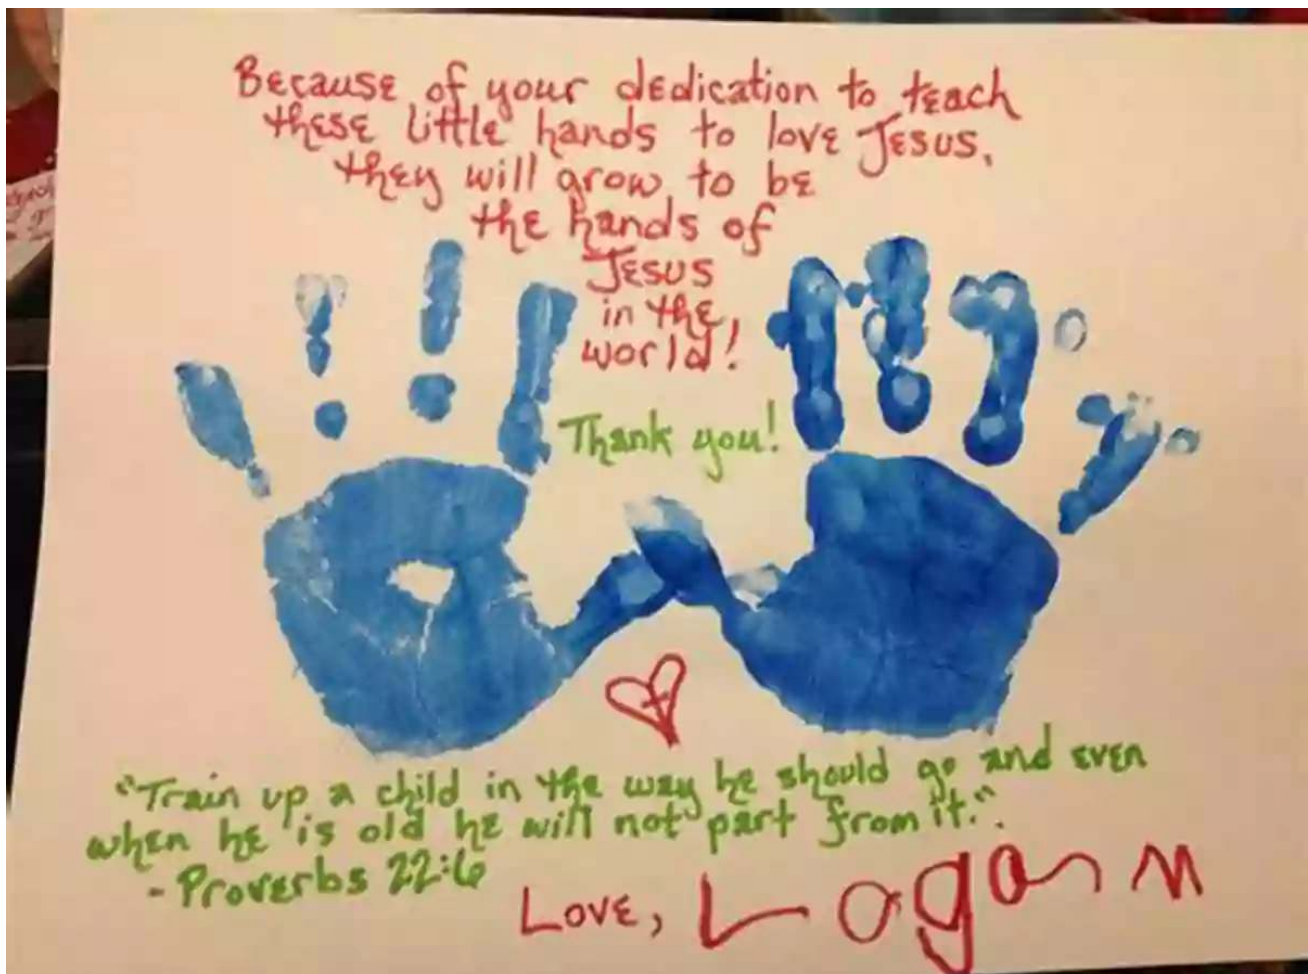 Because of your dedication to teach
these little hands to love Jesus,
they will grow to be
the hands of
Jesus
in the
world!
Thank you!
"Train up a child in the way he should go and even
when he is old he will not part from it."
- Proverbs 22:6
Love, Logan M